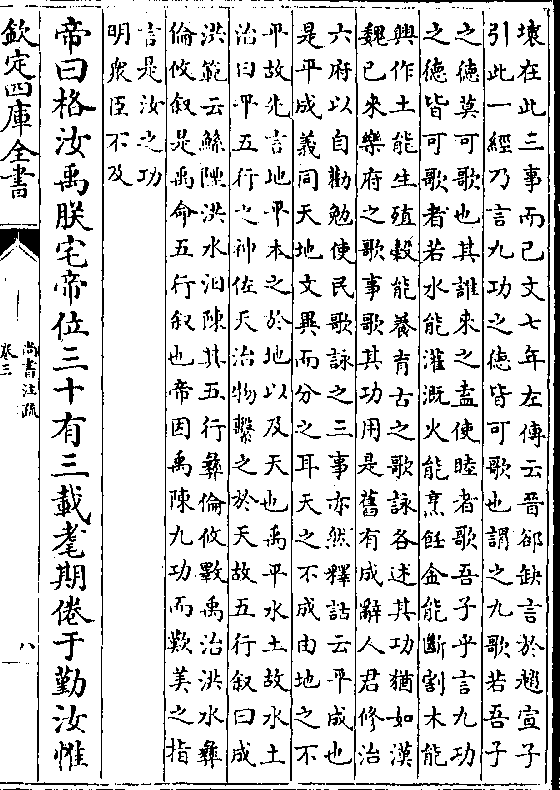 壊在此三事而已文七年左傳云晉郤缺言於趙宣子
引此一經乃言九功之德皆可歌也謂之九歌若吾子
之德莫可歌也其誰來之盍使睦者歌吾子乎言九功
之德皆可歌者若水能灌溉火能烹飪金能斷割木能
興作土能生殖穀能養育古之歌詠各述其功猶如漢
魏已來樂府之歌事歌其功用是舊有成辭人君修治
六府以自勸勉使民歌詠之三事亦然釋詁云平成也
是平成義同天地文異而分之耳天之不成由地之不
平故先言地平本之於地以及天也禹平水土故水土
治曰平五行之神佐天治物繫之於天故五行叙曰成
洪範云鯀陻洪水汩陳其五行彝倫攸斁禹治洪水彝
倫攸叙是禹命五行叙也帝因禹陳九功而歎美之指
言是汝之功
明衆臣不及
帝曰格汝禹朕宅帝位三十有三載耄期倦于勤汝惟
欽定四庫全書
尚書注疏
卷三
八